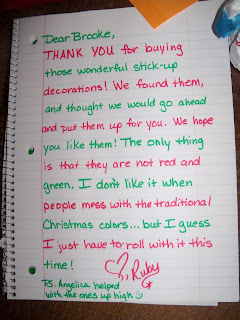 Dear Brooke,
THANK YOU for buying
those wonderful stick-up
decorations! We found them,
and thought we would go ahead
and put them up for you. We hope
you like them! The only thing
is that they are not red and
green. I don't like it when
people mess with the traditional
Christmas colors...but I guess
I just have to roll with it this
time!
Ruby
P.S. Angelica helped
with the ones up high :)